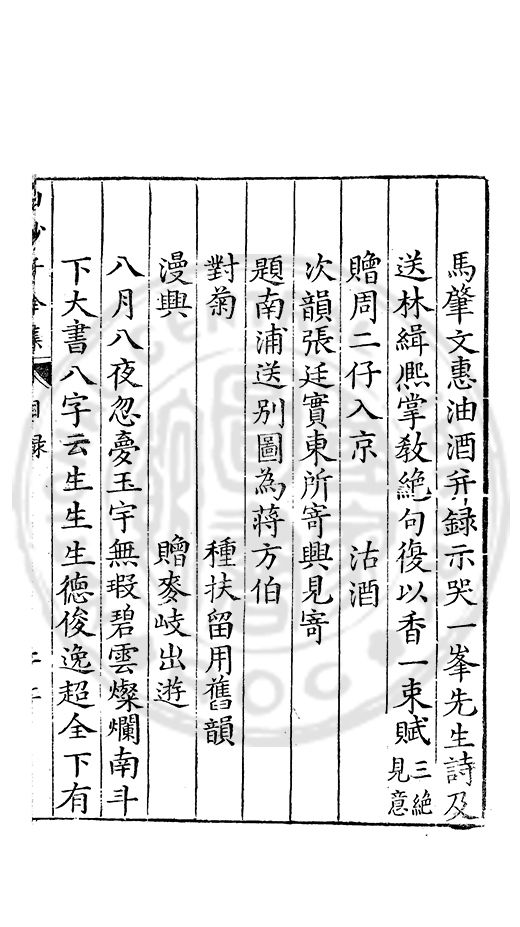 馬肇文惠油酒并録示哭一峯先生詩及
送林緝熈掌教絶句復以香一束賦三絶見意
贈周二仔入京　沽酒
次韻張廷實東所寄興見寄
題南浦送別圖為蔣方伯
對菊　種扶留用舊韻
漫興　贈麥岐出遊
八月八夜忽夢玉宇無瑕碧雲燦爛南斗
下大書八字云生生生德俊逸超全下有
白沙子全集　目録